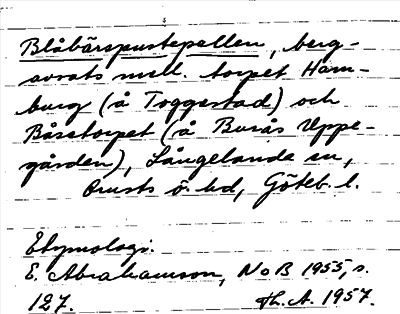 Blåbärspustepallen, berg-
avsats mell. torpet Ham-
burg (å Toggestad) och
Båsetorpet (å Borås Uppe-
gården), Långelanda sn,
Orusts ö. hd, Göteb. l.
Etymologi.
E. Abrahamson, NoB 1955, s.
127. Th. A. 1957.